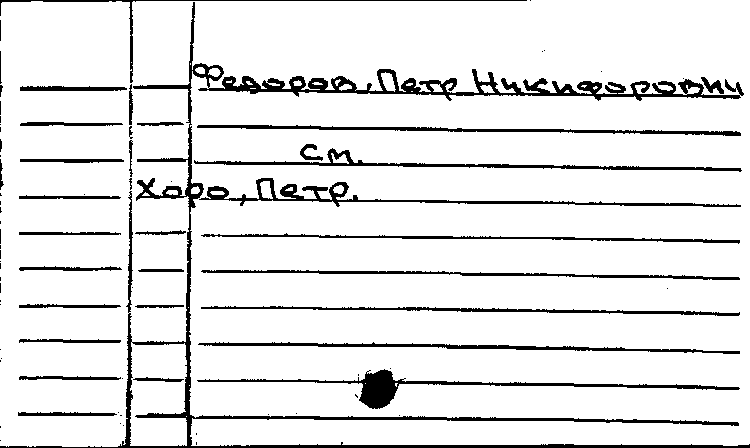 Федоров, Петр Никифорович
см.
Хоро, Петр.